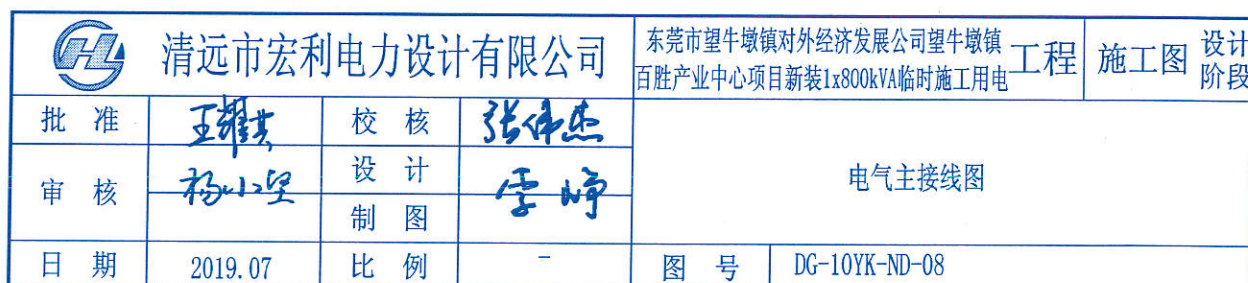 清远市宏利电力设计有限公司
东莞市望牛墩镇对外经济发展公司望牛墩镇
百胜产业中心项目新装1x800kVA临时施工用电
工程
施工图
设计
阶段
批 准
校 核
张伟杰
审 核
杨小坚
设 计
制 图
电气主接线图
日 期
2019.07
比 例
-
图 号
DG-10YK-ND-08